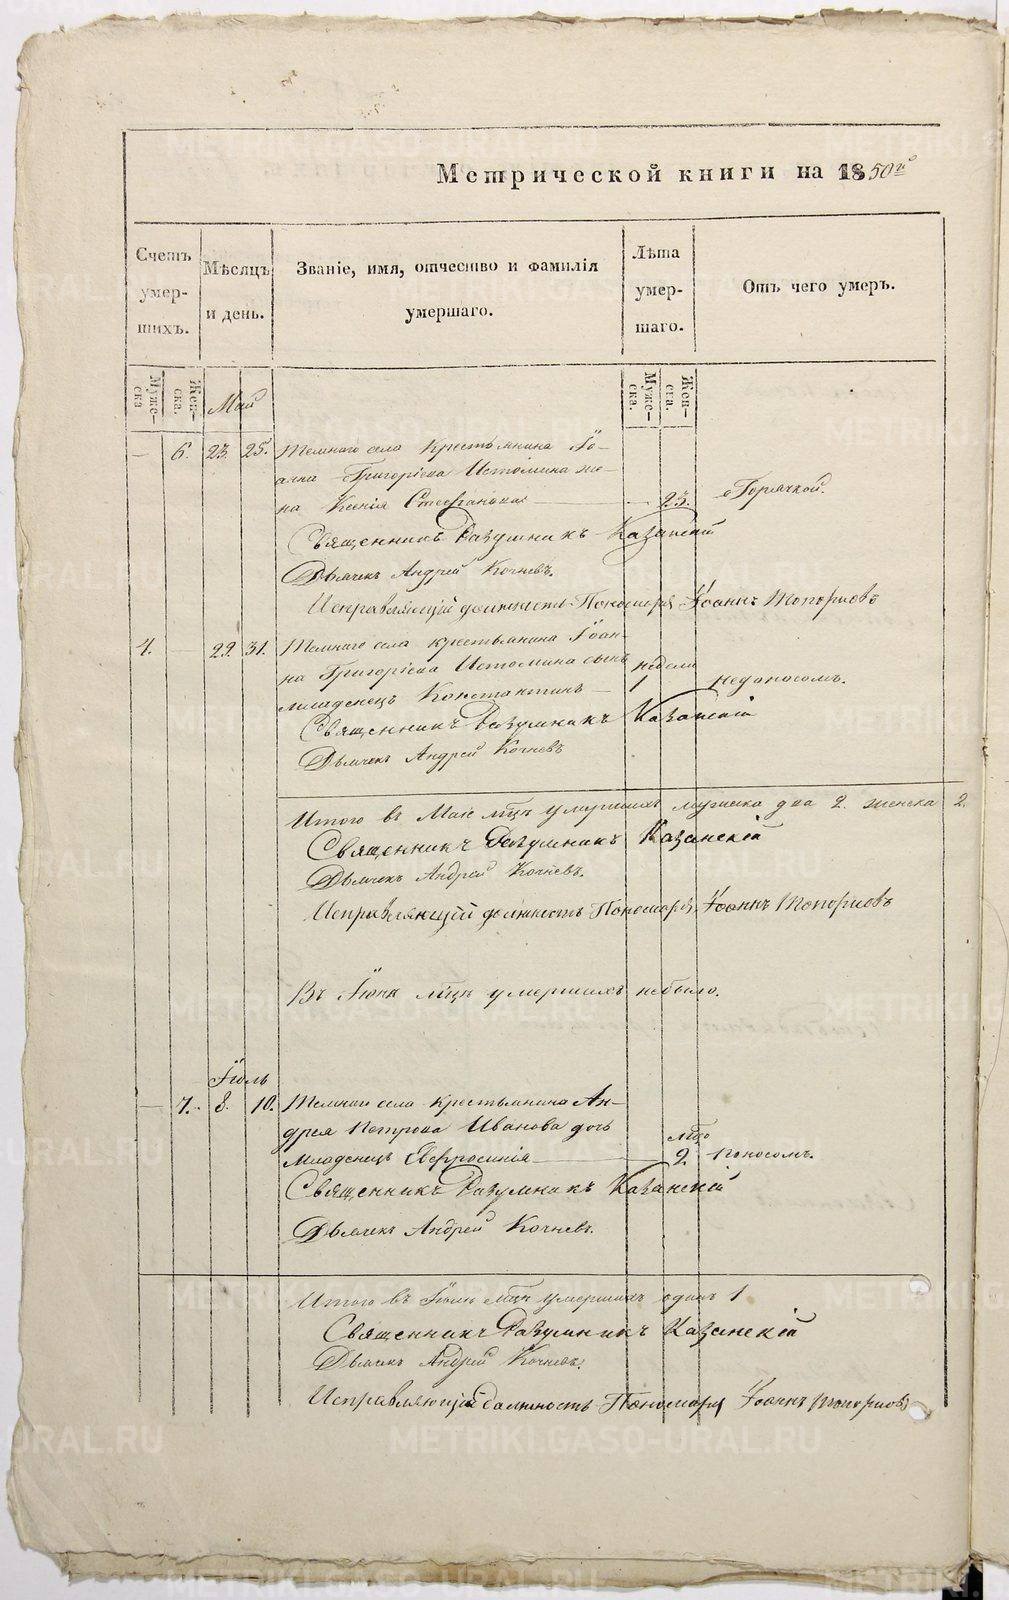 Метрической книги на 1850й
Счетъ умер-шихъ.
Мѣсяцъ и день.
Званіе, имя, отчество и фамилія умершаго.
Лѣта умер-шаго.
Отъ чего умеръ.
Муже-ска
Жен-ска.
Май
Муже-ска.
Жен-ска.
— 6. 23. 25. Темнаго села Крестьянина Іо-
анна Григоріева Истомина же-
на Ксенія Стефанова — 23. Горячкой.
Священникъ Разумникъ Казанскій
Дьячекъ Андрей Кочневъ.
Исправляющій должность Пономаря Іоаннъ Топорковъ
4. — 29. 31. Темнаго села крестьянина Іоан-
на Григоріева Истомина сынъ недели
младенецъ Константинъ — 1 недоносомъ.
Священникъ Разумникъ Казанскій
Дьячекъ Андрей Кочневъ
Итого въ Маіе мцѣ умершихъ мужеска два 2. женска 2.
Священникъ Разумникъ Казанскій
Дьячекъ Андрей Кочневъ.
Исправляющій должность Пономаря Іоаннъ Топорковъ
Въ Іюнѣ мцѣ умершихъ небыло.
Іюль
— 7. 8. 10. Темнаго села крестьянина Ан-
дрея Петрова Иванова дочь
Младенецъ Евфросинія — 2. поносомъ.
Священникъ Разумникъ Казанскій
Дьячекъ Андрей Кочневъ.
Итого въ Іюлѣ мцѣ умершихъ одинъ 1
Священникъ Разумникъ Казанскій
Дьячекъ Андрей Кочневъ.
Исправляющій должность Пономаря Іоаннъ Топорковъ
METRIKI.GASO-URAL.RU